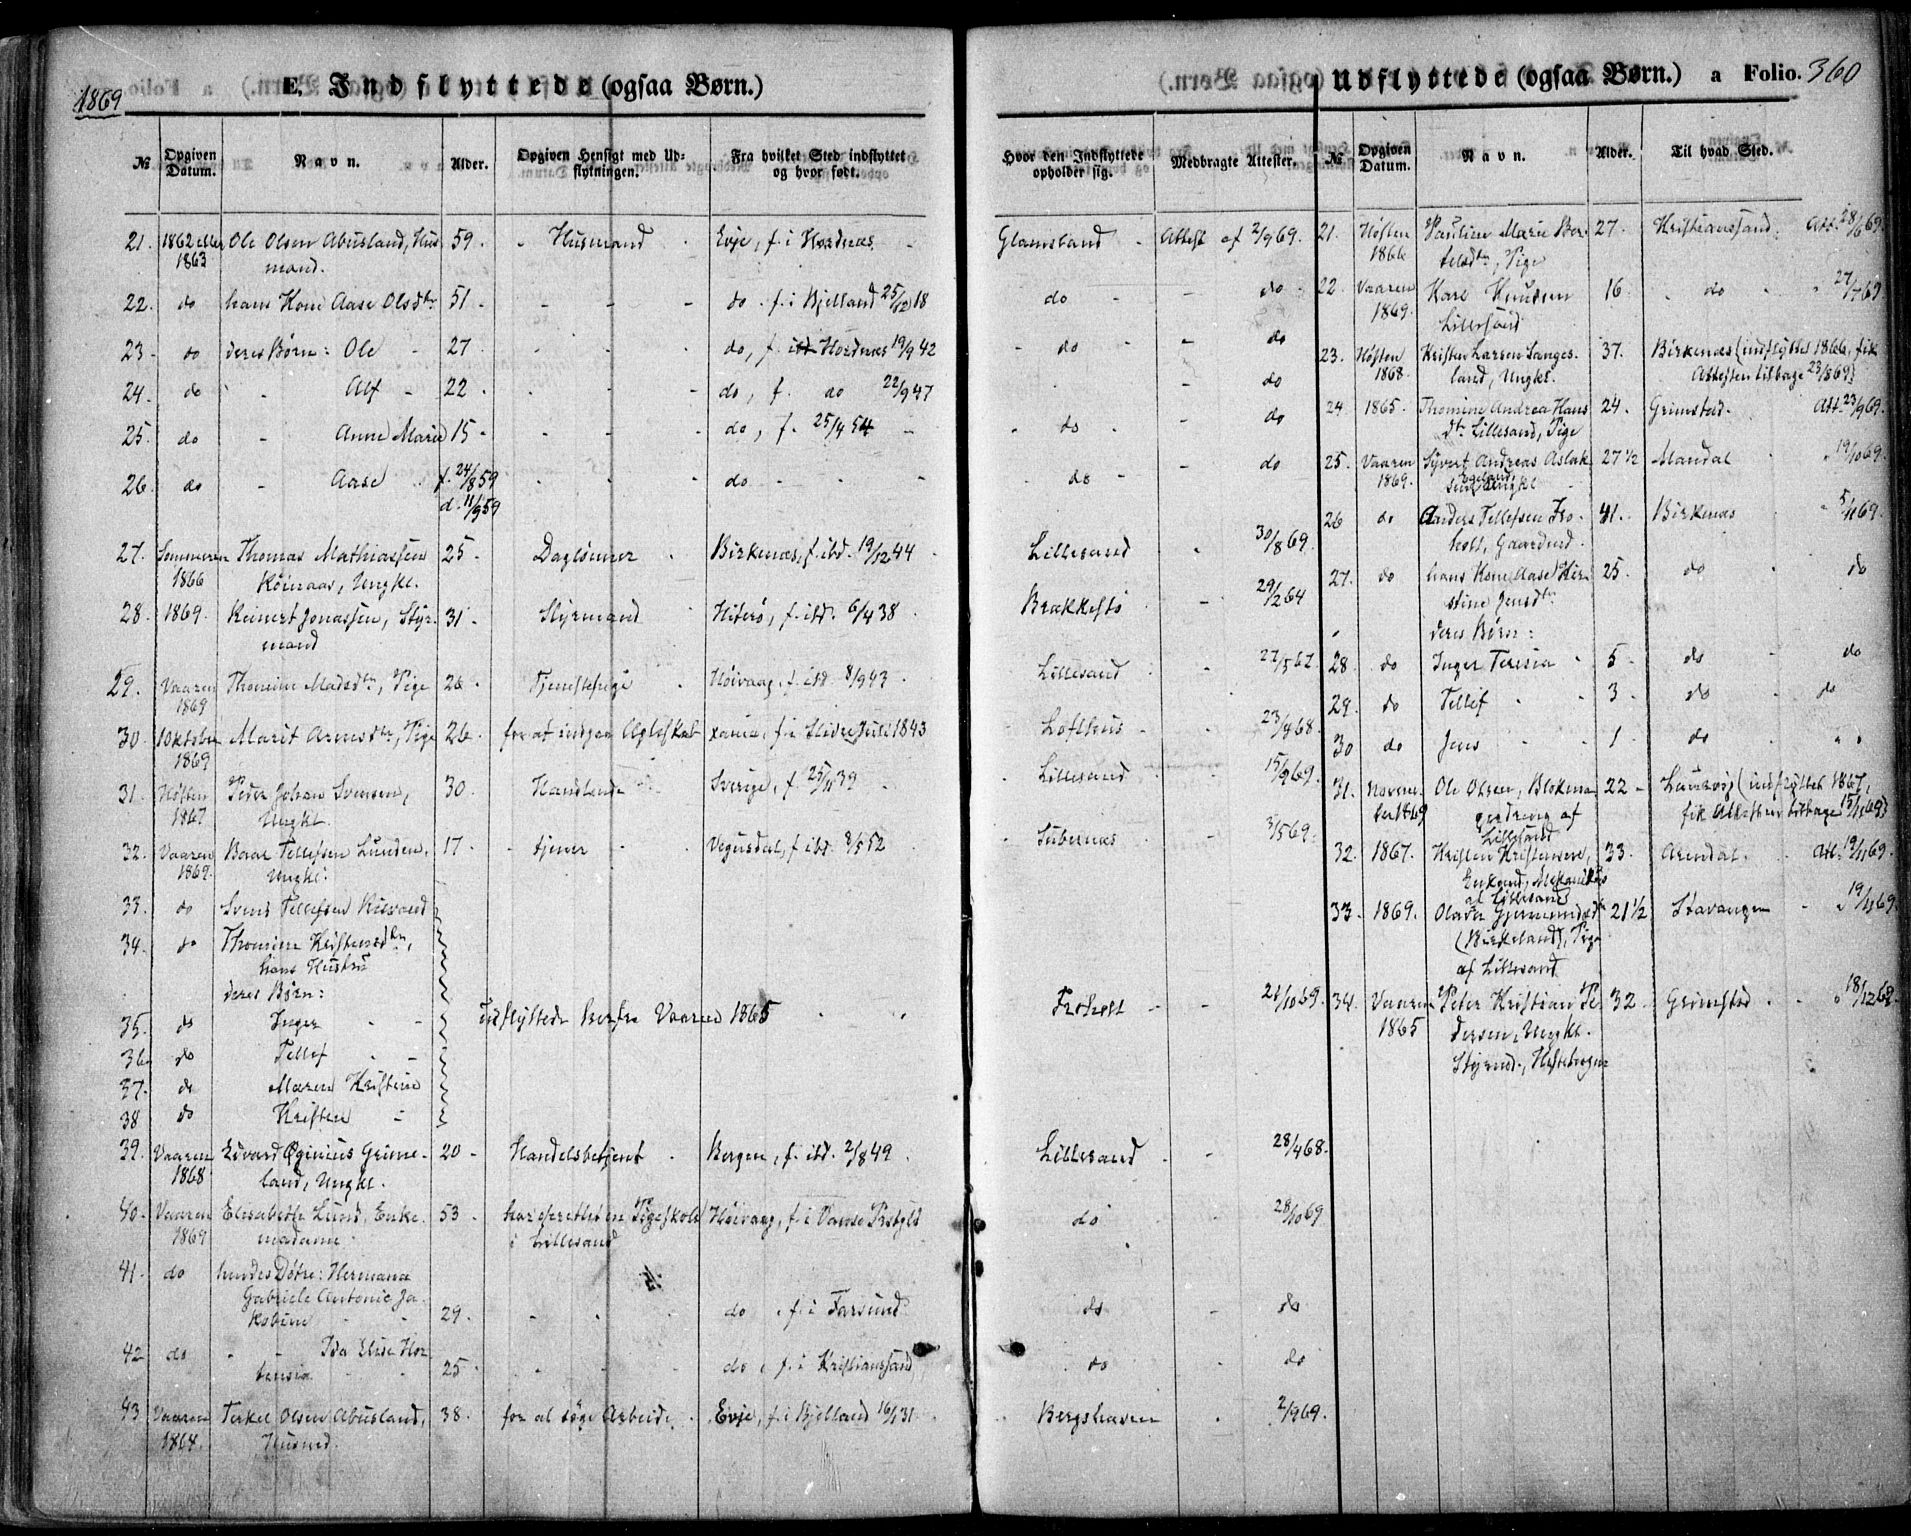 1869
E. Indflyttede (ogsaa Børn.)
№ Opgiven Datum. Navn. Alder. Opgiven Hensigt med Udflytningen. Fra hvilket Sted indflyttet og hvor født.
Hvor den Indflyttede opholder sig. Medbragte Attester.
21. 1862 eller 1863 Ole Olsen Abusland, Husmand. 59. Husmand Evje, f. i Hordnæs Glamsland Attest af 2/9 69.
22. do hans Kone Aase Olsdtr 51 - - do. f. i Bjelland 25/12 18 do - do
23 do deres Børn: Ole 27 - - do, f. Hordnæs 19/9 42 do - do
24. do " Alf 22 - - do, f. do 22/9 47 - do
25. do - Anne Marie 15 - - do, f. 25/9 54 do - do
26. do - Aase f. 24/8 59 d. 11/9 59 do do - do
27. Sommeren 1866 Thomas Mathiassen Ungkl. 25 - Daglønner Birkenæs, f. ibd. 19/12 44 Lillesand 30/8 69.
28. 1869. Reinert Jonassen, Styrmand 31 - Styrmand Hiterø, f. ibd. 6/4 38 Brækkestø - 29/2 64
29. Vaaren 1869 Thomine Madsdtr, Pige 26 - Tjenestepige Høivaag, f. ibd 8/9 43 Lillesand
30. Oktober 1869 Marit Arnesdtr, Pige 26. for at indgaa Ægteskab xania, f. i Slidre Juli 1843 Lofthus 23/9 68.
31. Høsten 1867 Peder Johan Svensen, Ungkl. 30. Handlende Sverige, f. 25/11 39 Lillesand 15/9 69.
32. Vaaren 1869. Baar Tellefsen Lunden, Ungkl. 17. - tjener Vegusdal, f. ibd. 8/5 52 3/5 69.
33. do Svend Tellefsen
34. do Thomine Kristensdtr, hans Hustru
deres Børn: udflyttede herfra Vaaren 1865 Froholt - 21/10 69.
35. do Inger
36 do Tellef
37. do Maren Kristine
38 do Kristen
39. Vaaren 1868 Edvard Grimeland, Ungkl. 20 - Handelsbetjent Bergen, f. ibd. 2/8 49 Lillesand - 28/4 68.
40. Vaaren 1869 Elisabeth Lund, Enkemadame. 53 - har oprettet en Pigeskole i Lillesand Høivaag, f. i Vanse Prstgld do 28/10 69
41. do hendes Døtre: Hermana Gabriele Antonie Jakobine 29. do, f. i Farsund do - do
42 do - - Ida Elise Hortensia 25 - do, f. i Kristianssand do - do
43 Vaaren 1868. Terkel Olsen Abusland, Husmd. 38. for at søge Arbeide Evje, f. i Bjelland 16/1 31 Bergshaven 2/9 69.
Udflyttede (ogsaa Børn.) a Folio. 360
№ Opgiven Datum. Navn. Alder. Til hvad Sted.
21. Høsten 1866 Pauline Marie Bertelsdtr, Pige 27. Kristianssand. Att. 28/6 69.
22. Vaaren 1869. Karl Knudsen Lillesand 16. " do " 27/7 69
23. Høsten 1868. Kristen Larsen Sangesland, Ungkl. 37. Birkenæs (indflyttet 1866, fik Attesten tilbage 23/8 69)
24. 1865. Thomine Andrea Hansdtr Lillesand, Pige 24. Grimstad. Att. 23/9 69.
25. Vaaren 1869. Syvert Andreas Aslaksen Ungkl 27 1/2 Mandal " 19/10 69.
26 do Anders Tellefsen Froholt, Gaardmd. 41. Birkenæs " 5/11 69.
27. do hans Kone Aase Kirstine Jensdtr 25. do do
deres Børn:
28. do Inger Teresia 5 - do do
29. do Tellef 3 - do do
30 do Jens 1 do " "
31. November 1869 Ole Olsen, Blokmagerdreng af Lillesand 22 - Landvig (indflyttet 1867, fik Attesten tilbage 15/11 69)
32. 1867. Kristen Kristensen, af Lillesand 33. Arendal. Att. 19/11 69.
33. 1869. Olava Gjermundsdtr (Birkeland), Pige af Lillesand 21 1/2 Stavanger " 19/11 69.
34. Vaaren 1865 Peter Kristian Pedersen, Ungkl. Styrmd., 32 - Grimstad - " 18/12 68.